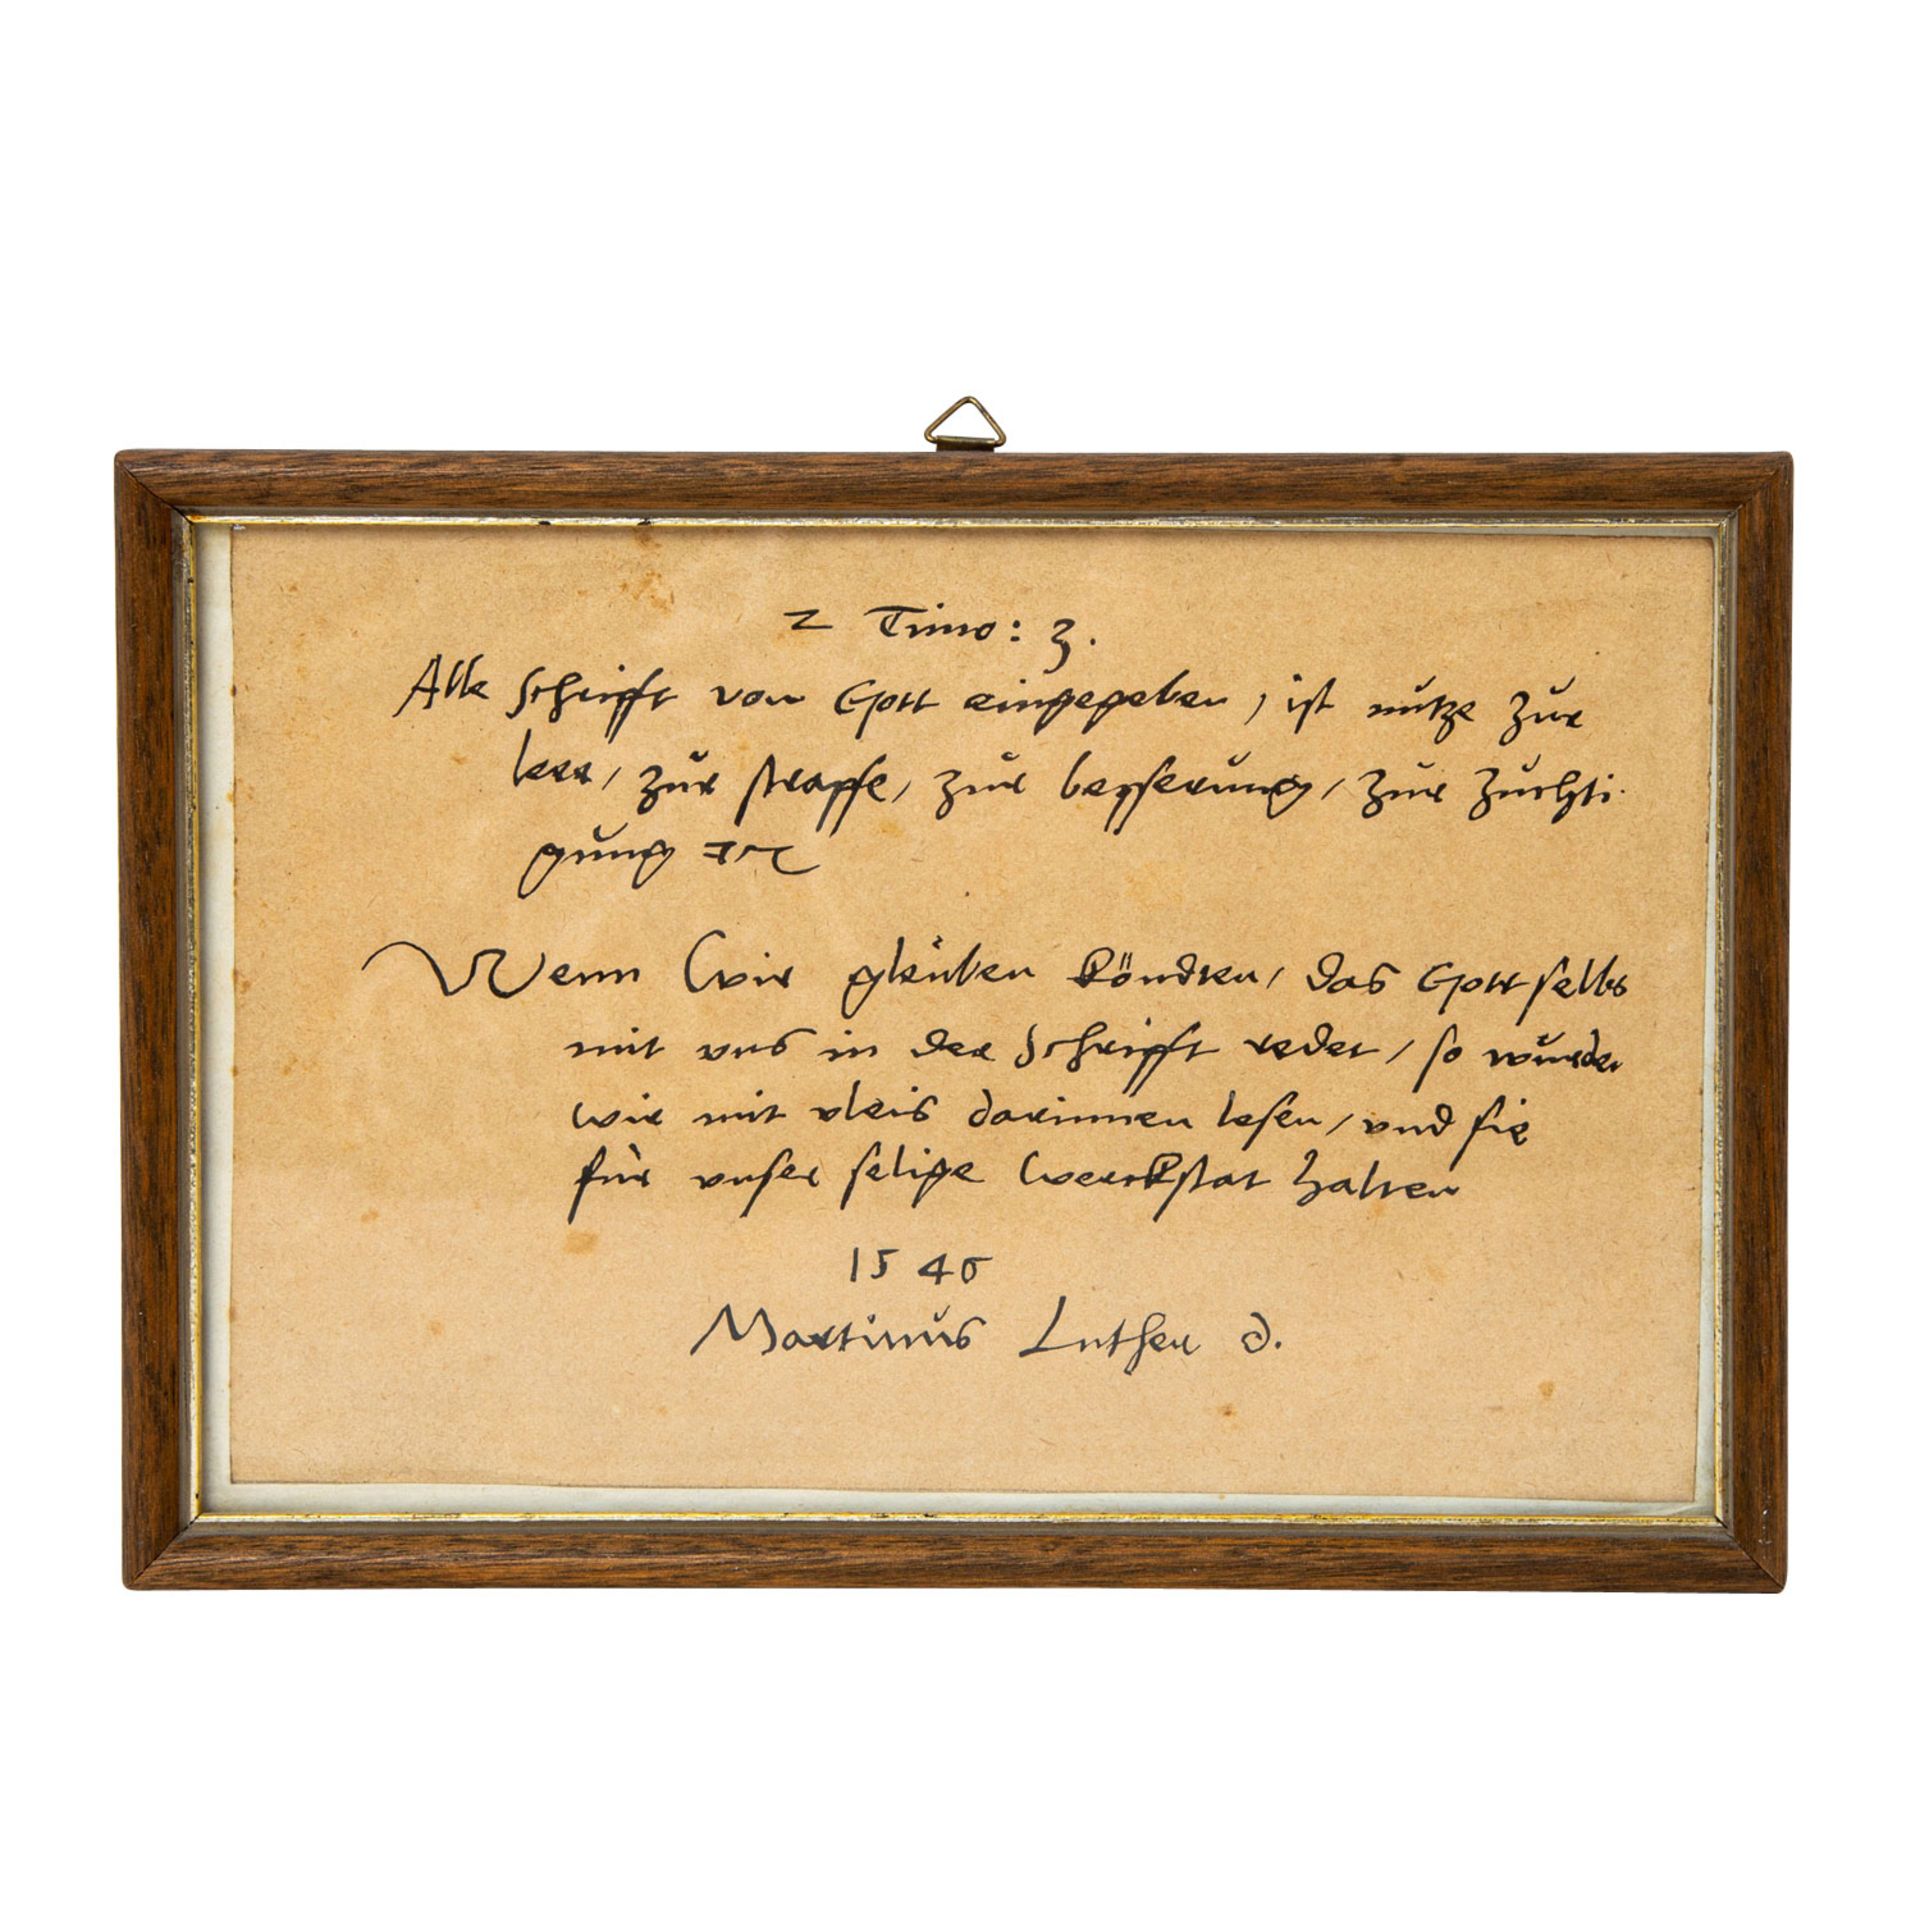 2 Timo: 3.
Alle schrifft von Gott eingegeben / ist nütze zur
lere / zur straffe / zur besserung / zur zuchti-
gung etc
Wenn wir gleuben köndten / das Gott selbs
mit uns in der schrifft redet / so würden
wir mit vleis darinnen lesen / und sie
für unser selige werckstat halten
1546
Martinus Luther d.